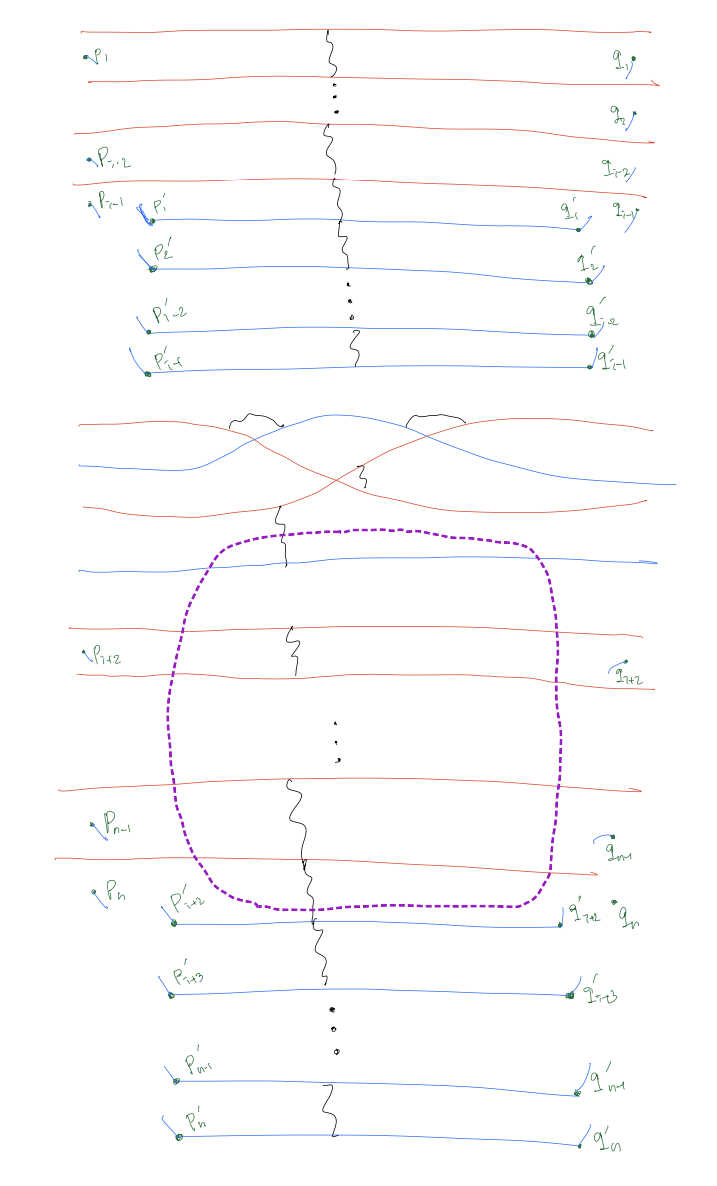 p₁ q₁
q₂
p_{i-2} q_{i-2}
p_{i-1} p'₁ q'₁ q_{i-1}
p'₂ q'₂
p'_{i-2} q'_{i-2}
p'_{i-1} q'_{i-1}
p_{i+2} q_{i+2}
p_{n-1} q_{n-1}
p_n p'_{i+2} q'_{i+2} q_n
p'_{i+3} q'_{i+3}
p'_{n-1} q'_{n-1}
p'_n q'_n